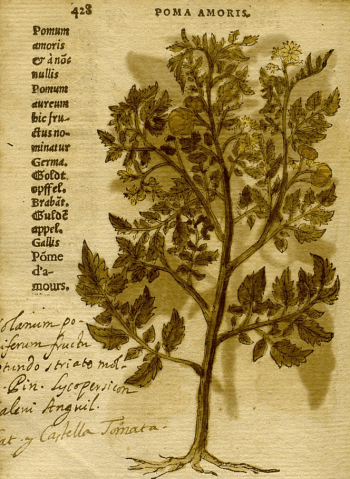 428
POMA AMORIS.
Pomum
amoris
& à nõc
nullis
Pomum
aureum
hic fru-
ctus no-
minatur
Germa.
Goldt
opffel.
Brabãt.
Guldẽ
appel.
Gallis
Põme
d'a-
mours.
olanum po-
iferum fructu
otundo striato mol-
. Pin. Lycopersicon
aleni Anguil.
at. y Castella Tomata.